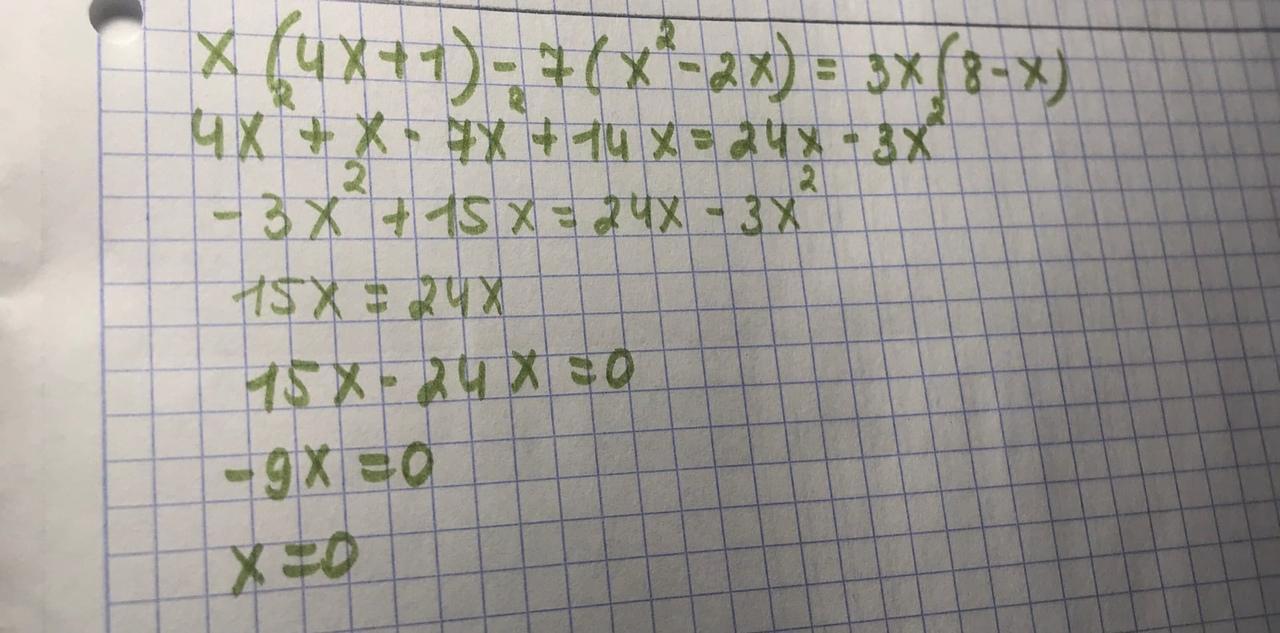 x (4x+1) - 7(x² - 2x) = 3x(8-x)
4x² + x - 7x² + 14x = 24x - 3x²
-3x² + 15x = 24x - 3x²
15x = 24x
15x - 24x = 0
-9x = 0
x = 0